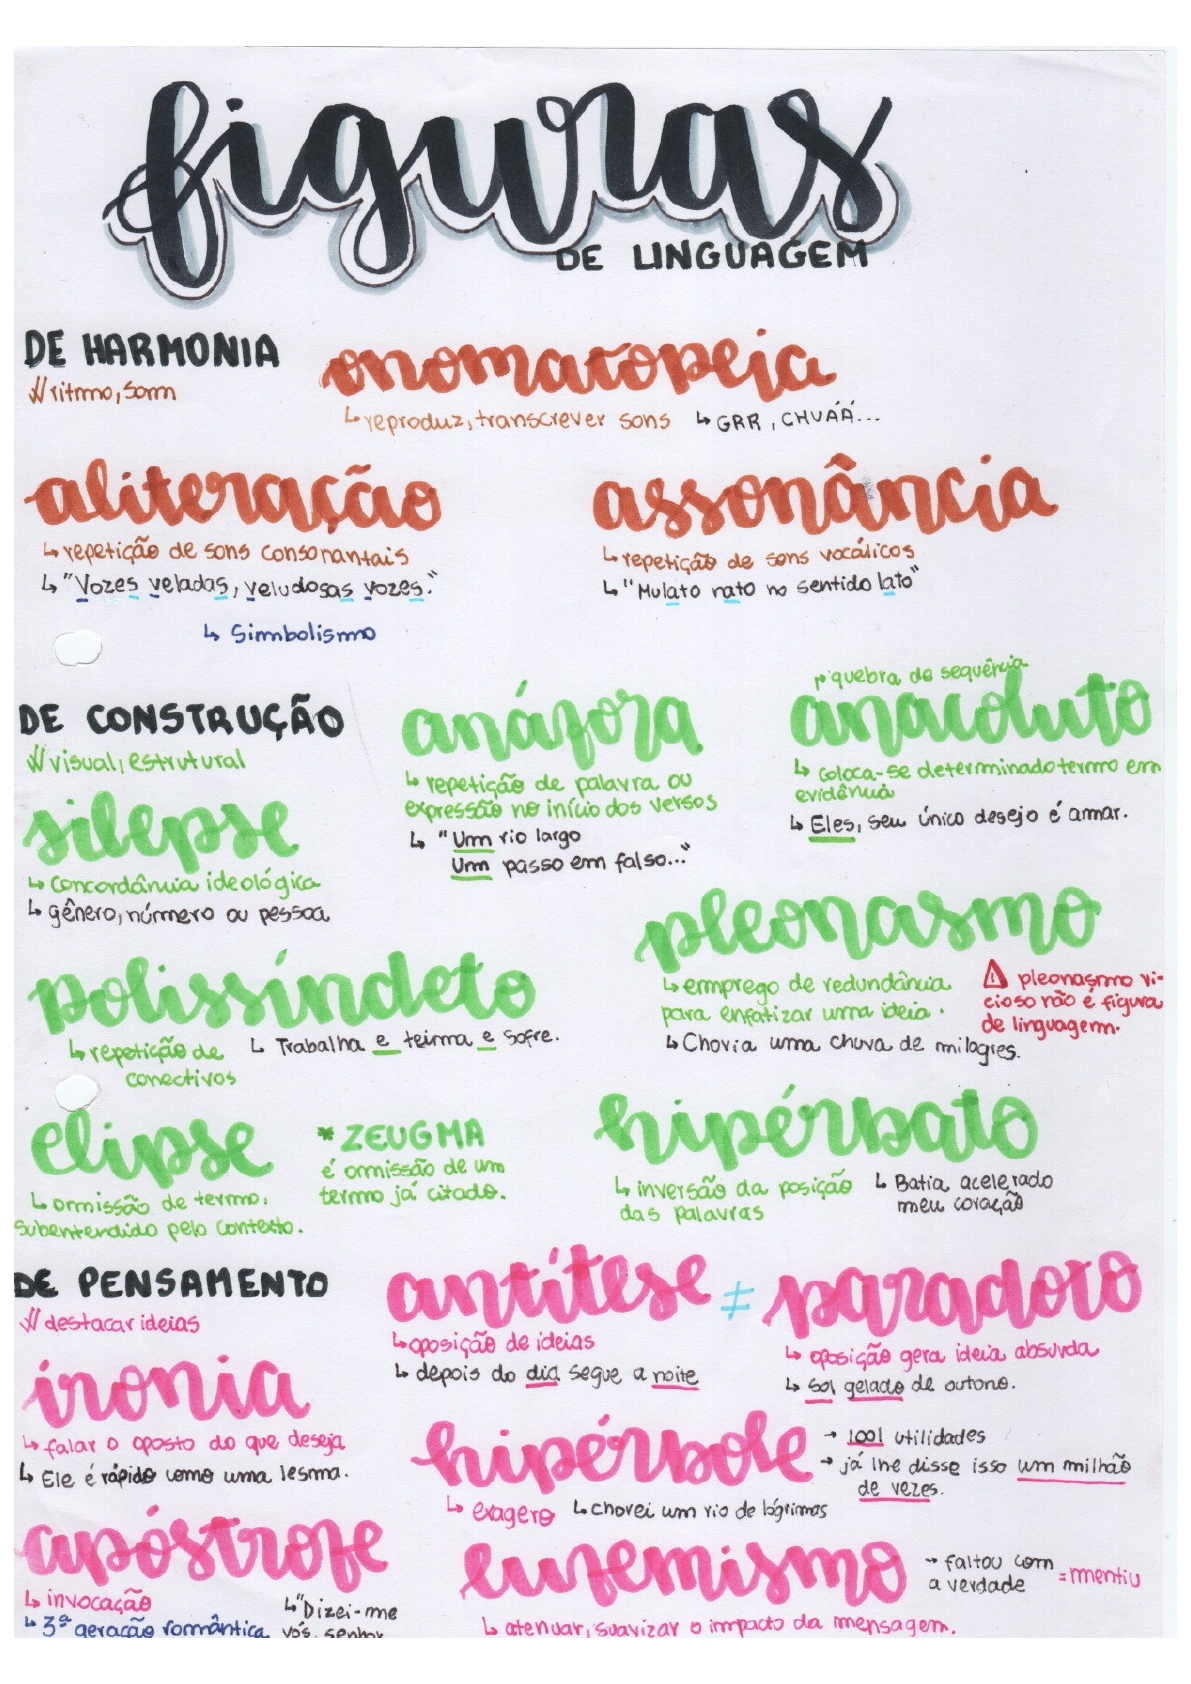 figuras
DE LINGUAGEM
DE HARMONIA
// ritmo, som
onomatopeia
↳ reproduz, transcrever sons ↳ GRR, CHUÁÁ...
aliteração
↳ repetição de sons consonantais
↳ "Vozes veladas, veludosas vozes."
↳ Simbolismo
assonância
↳ repetição de sons vocálicos
↳ "Mulato rato no sentido lato"
DE CONSTRUÇÃO
// visual, estrutural
anáfora
↳ repetição de palavra ou
expressão no início dos versos
↳ "Um rio largo
Um passo em falso..."
↱ quebra de sequência
anacoluto
↳ coloca-se determinado termo em
evidência
↳ Eles, seu único desejo é amar.
silepse
↳ concordância ideológica
↳ gênero, número ou pessoa
pleonasmo
↳ emprego de redundância
para enfatizar uma ideia.
↳ Chovia uma chuva de milagres.
⚠ pleonasmo vi-
cioso não é figura
de linguagem.
polissíndeto
↳ repetição de
conectivos
↳ Trabalha e teima e sofre.
elipse
↳ omissão de termo,
subentendido pelo contexto.
* ZEUGMA
é omissão de um
termo já citado.
hipérbato
↳ inversão da posição
das palavras
↳ Batia acelerado
meu coração
DE PENSAMENTO
// destacar ideias
antítese ≠ paradoxo
↳ oposição de ideias
↳ depois do dia segue a noite
↳ oposição gera ideia absurda
↳ Sol gelado de outono.
ironia
↳ falar o oposto do que deseja
↳ Ele é rápido como uma lesma.
hipérbole
→ 1001 utilidades
→ já lhe disse isso um milhão
de vezes.
↳ exagero ↳ chorei um rio de lágrimas
apóstrofe
↳ invocação
↳ 3ª geração romântica
↳ "Dizei-me
vós, senhor
eufemismo
→ faltou com
a verdade = mentiu
↳ atenuar, suavizar o impacto da mensagem.